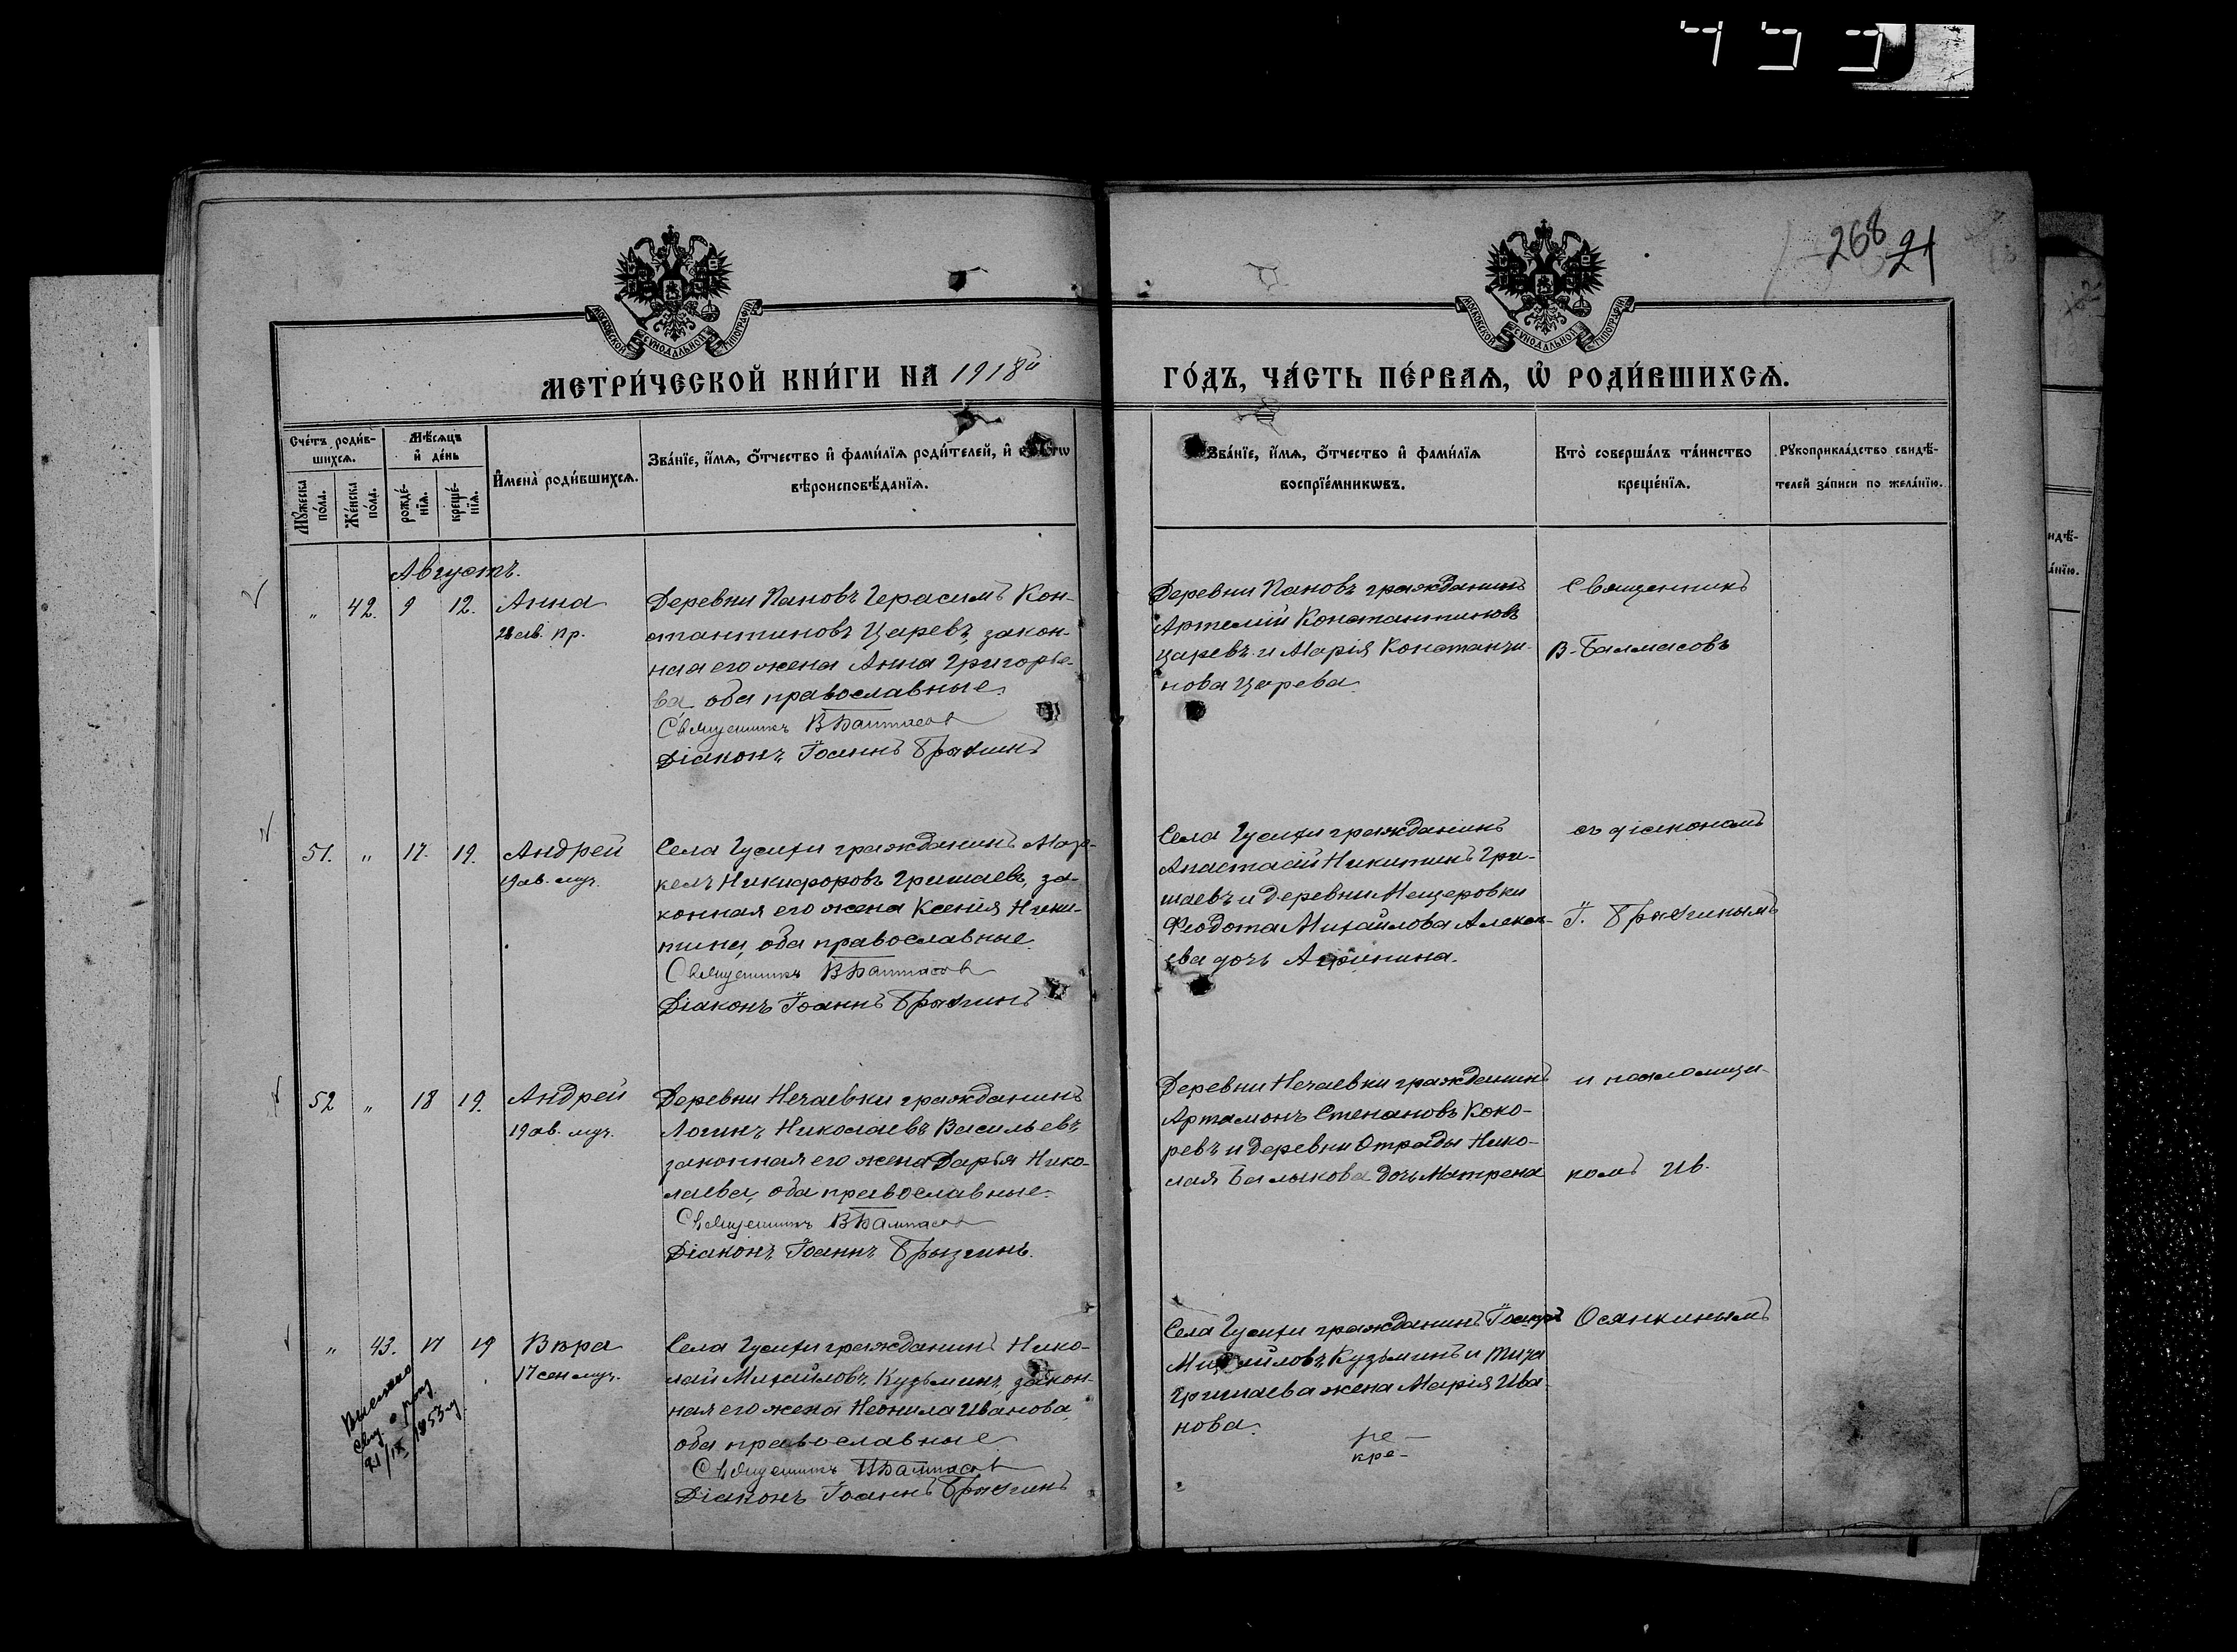 268 21
МОСКОВСКОЙ СѴНОДАЛЬНОЙ ТИПОГРАФІИ
МОСКОВСКОЙ СѴНОДАЛЬНОЙ ТИПОГРАФІИ
МЕТРИ́ЧЕСКОЙ КНИ́ГИ НА 1918й
ГО́ДЪ, ЧА́СТЬ ПЕ́РВАѦ, Ѽ РОДИ́ВШИХСѦ.
Сче́тъ роди́в-
шихсѧ.
Мꙋ́жеска
по́ла.
Же́нска
по́ла.
Мѣ́сѧцъ
и҆ де́нь
рожде́-
нїѧ.
креще́-
нїѧ.
И҆мена̀ роди́вшихсѧ.
Зва́нїе, и҆́мѧ, ѻ҆́тчество и҆ фами́лїѧ роди́телей, и҆
вѣроисповѣ́данїѧ.
Зва́нїе, и҆́мѧ, ѻ҆́тчество и҆ фами́лїѧ
воспрїе́мникѡвъ.
Кто̀ соверша́лъ та́инство
креще́нїѧ.
Рꙋкоприкла́дство свидѣ́-
телей за́писи по жела́нїю.
Августъ.
" 42. 9 12. Анна
28 ав. пр.
Деревни Пановъ Герасимъ Кон-
стантиновъ Царевъ, закон-
ная его жена Анна Григорье-
ва, оба православные.
Священникъ В Балмасов
Діаконъ Іоаннъ Брызгинъ
Деревни Пановъ гражданинъ
Артемій Константиновъ
Царевъ и Марія Константи-
нова Царева.
Священникъ
В. Балмасовъ
51. " 17. 19. Андрей
19 ав. муч.
Села Гусихи гражданинъ
Никифоровъ Гришаевъ, за-
конная его жена Ксенія Ники-
тина, оба православные.
Священникъ В Балмасов
Діаконъ Іоаннъ Брызгинъ
Села Гусихи гражданинъ
Анастасій Никитинъ Гри-
шаевъ и деревни Мещеровки
Феодота Михайлова Алексе-
ева дочь
съ діакономъ
І. Брызгинымъ
52 " 18 19. Андрей
19 ав. муч.
Деревни Нечаевки гражданинъ
Логинъ Николаевъ Васильевъ,
законная его жена Дарья Нико-
лаева, оба православные.
Священникъ В Балмасов
Діаконъ Іоаннъ Брызгинъ.
Деревни Нечаевки гражданинъ
Артамонъ Степановъ Коко-
ревъ и деревни Отрады Нико-
лая Балыкова дочь Матрена
и псаломщи-
комъ Ив.
" 43. 17 19 Вѣра
17 сен муч.
Села Гусихи гражданинъ Нико-
лай Михайловъ Кузьминъ, закон-
ная его жена Неонила Иванова,
оба православные.
Священникъ В Балмасов
Діаконъ Іоаннъ Брызгинъ
Села Гусихи гражданинъ
Михайловъ Кузьминъ и
Гришаева жена Марія Ива-
нова.
Осянкинымъ